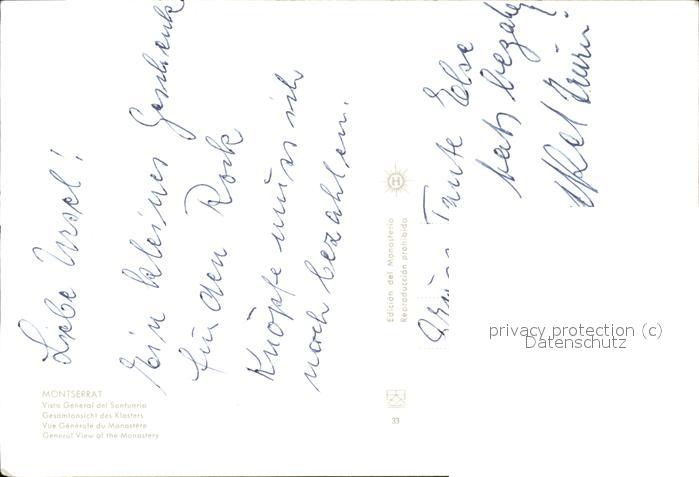 Liebe Ursel!
Ein kleines Geschenk
für den Rock
Knöpfe muss ich
noch bezahlen.
Tante Else
hats bezahlt
MONTSERRAT
Vista General del Santuario
Gesamtansicht des Klosters
Vue Générale du Monastère
General View of the Monastery
Edición del Monasterio
Reproducción prohibida
H
33
privacy protection (c)
Datenschutz